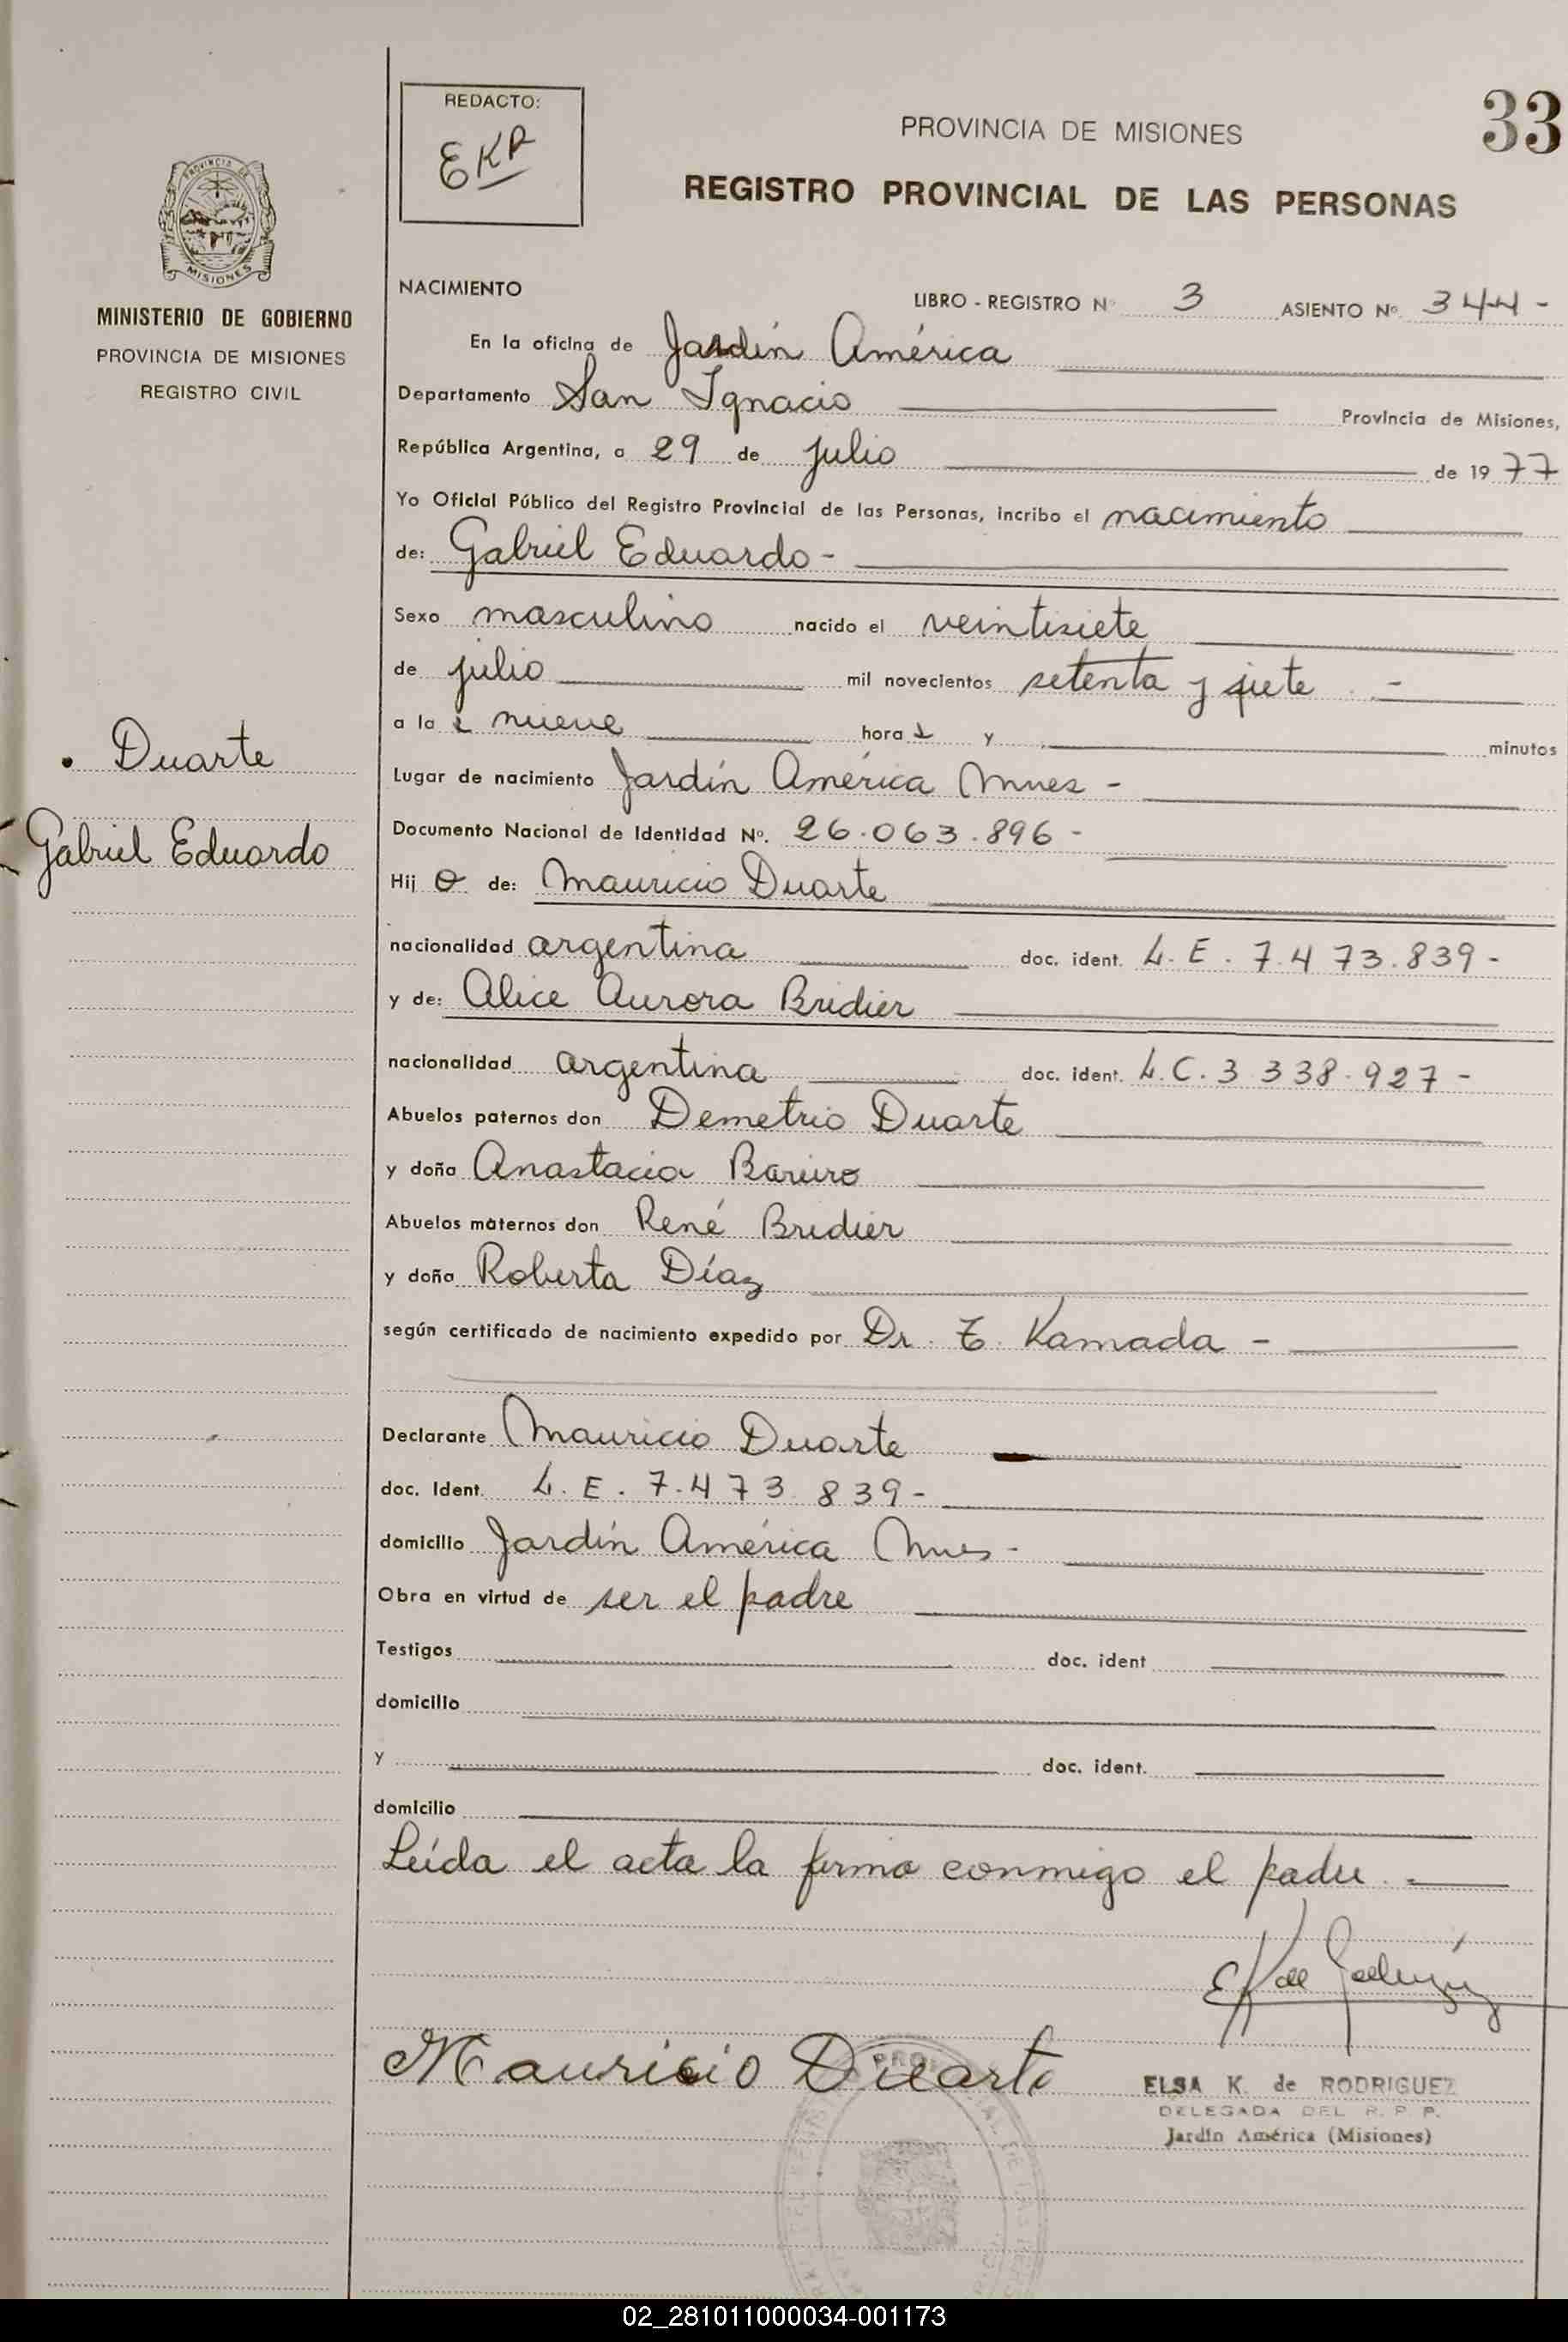 REDACTO:
EKR
PROVINCIA DE MISIONES
33
REGISTRO PROVINCIAL DE LAS PERSONAS
PROVINCIA DE
MISIONES
MINISTERIO DE GOBIERNO
PROVINCIA DE MISIONES
REGISTRO CIVIL
Duarte
Gabriel Eduardo
NACIMIENTO
LIBRO - REGISTRO Nº 3 ASIENTO Nº 344 -
En la oficina de Jardín América
Departamento San Ignacio Provincia de Misiones,
República Argentina, a 29 de julio de 1977
Yo Oficial Público del Registro Provincial de las Personas, incribo el nacimiento
de: Gabriel Eduardo -
Sexo masculino nacido el veintisiete
de julio mil novecientos setenta y siete -
a las nueve horas y minutos
Lugar de nacimiento Jardín América Mnes -
Documento Nacional de Identidad Nº. 26.063.896 -
Hij o de: Mauricio Duarte
nacionalidad argentina doc. ident. L.E. 7.473.839 -
y de: Alice Aurora Bridier
nacionalidad argentina doc. ident. L.C. 3.338.927 -
Abuelos paternos don Demetrio Duarte
y doña Anastacia Bareiro
Abuelos maternos don René Bridier
y doña Roberta Díaz
según certificado de nacimiento expedido por Dr. T. Kamada -
Declarante Mauricio Duarte
doc. Ident. L.E. 7.473.839 -
domicilio Jardín América Mnes -
Obra en virtud de ser el padre
Testigos doc. ident
domicilio
y doc. ident.
domicilio
Leída el acta la firma conmigo el padre.
EK de Rodríguez
Mauricio Duarte
ELSA K. de RODRIGUEZ
DELEGADA DEL R. P. P.
Jardín América (Misiones)
02_281011000034-001173